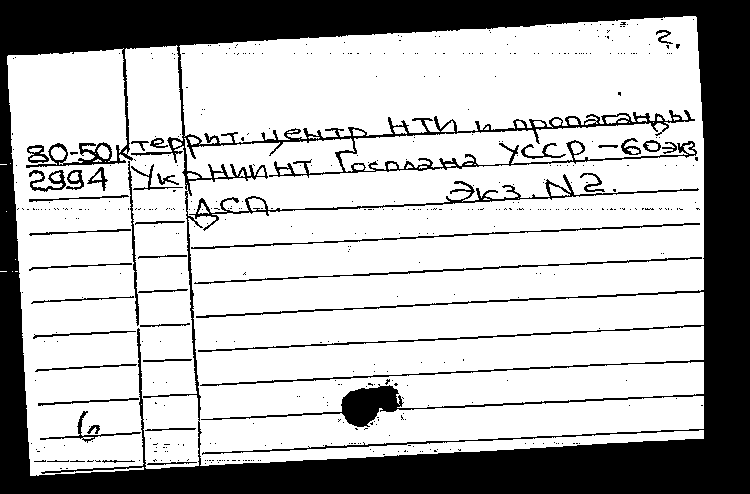 2.
80-50к террит. центр НТИ и пропаганды
2994 УкрНИИНТИ Госплана УССР. -60экз
ДСП. Экз. N2.
6